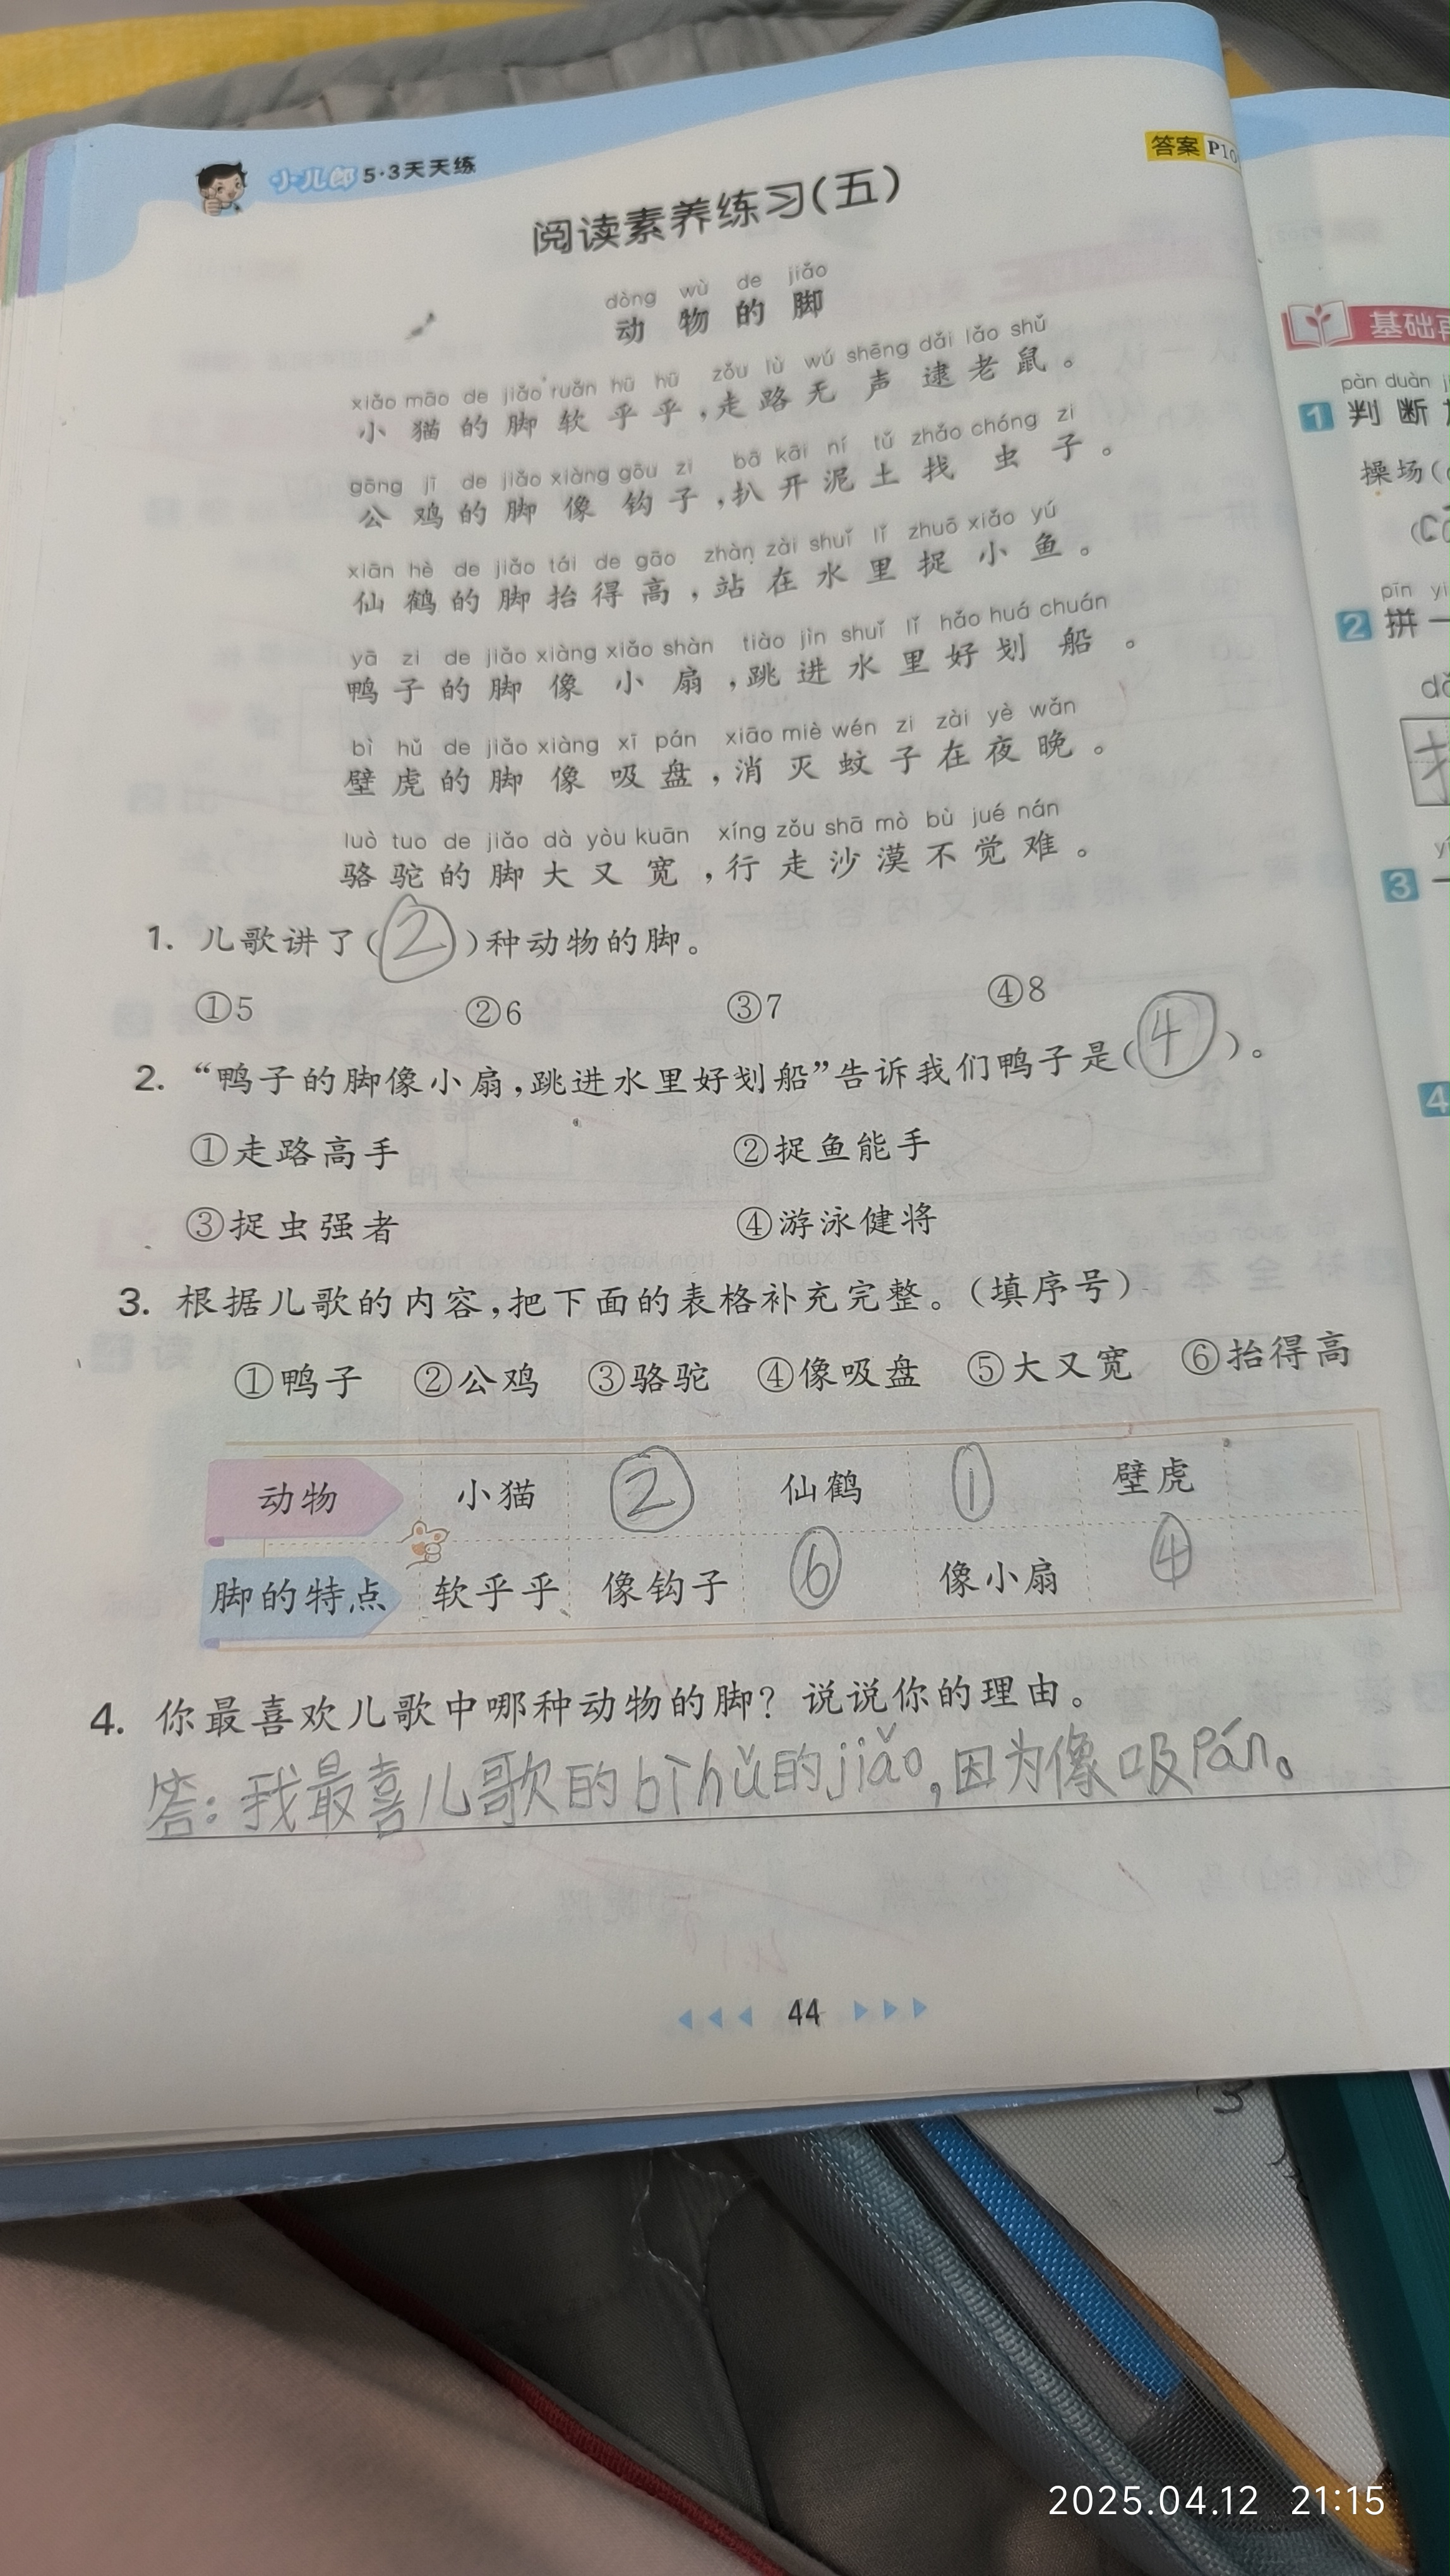 小儿郎 5·3天天练
答案 P10
阅读素养练习(五)
dòng wù de jiǎo
动物的脚
xiǎo māo de jiǎo ruǎn hū hū zǒu lù wú shēng dǎi lǎo shǔ
小猫的脚软乎乎,走路无声逮老鼠。
gōng jī de jiǎo xiàng gōu zi bā kāi ní tǔ zhǎo chóng zi
公鸡的脚像钩子,扒开泥土找虫子。
xiān hè de jiǎo tái de gāo zhàn zài shuǐ lǐ zhuō xiǎo yú
仙鹤的脚抬得高,站在水里捉小鱼。
yā zi de jiǎo xiàng xiǎo shàn tiào jìn shuǐ lǐ hǎo huá chuán
鸭子的脚像小扇,跳进水里好划船。
bì hǔ de jiǎo xiàng xī pán xiāo miè wén zi zài yè wǎn
壁虎的脚像吸盘,消灭蚊子在夜晚。
luò tuo de jiǎo dà yòu kuān xíng zǒu shā mò bù jué nán
骆驼的脚大又宽,行走沙漠不觉难。
1. 儿歌讲了(②)种动物的脚。
①5 ②6 ③7 ④8
2. “鸭子的脚像小扇,跳进水里好划船”告诉我们鸭子是(④)。
①走路高手 ②捉鱼能手
③捉虫强者 ④游泳健将
3. 根据儿歌的内容,把下面的表格补充完整。(填序号)
①鸭子 ②公鸡 ③骆驼 ④像吸盘 ⑤大又宽 ⑥抬得高
动物 小猫 ② 仙鹤 ① 壁虎
脚的特点 软乎乎 像钩子 ⑥ 像小扇 ④
4. 你最喜欢儿歌中哪种动物的脚？说说你的理由。
答:我最喜儿歌的bīhǔ的jiǎo,因为像吸Pán。
44
基础
pàn duàn
1 判断
操场(
pīn yi
2 拼一
3 一
4
2025.04.12 21:15